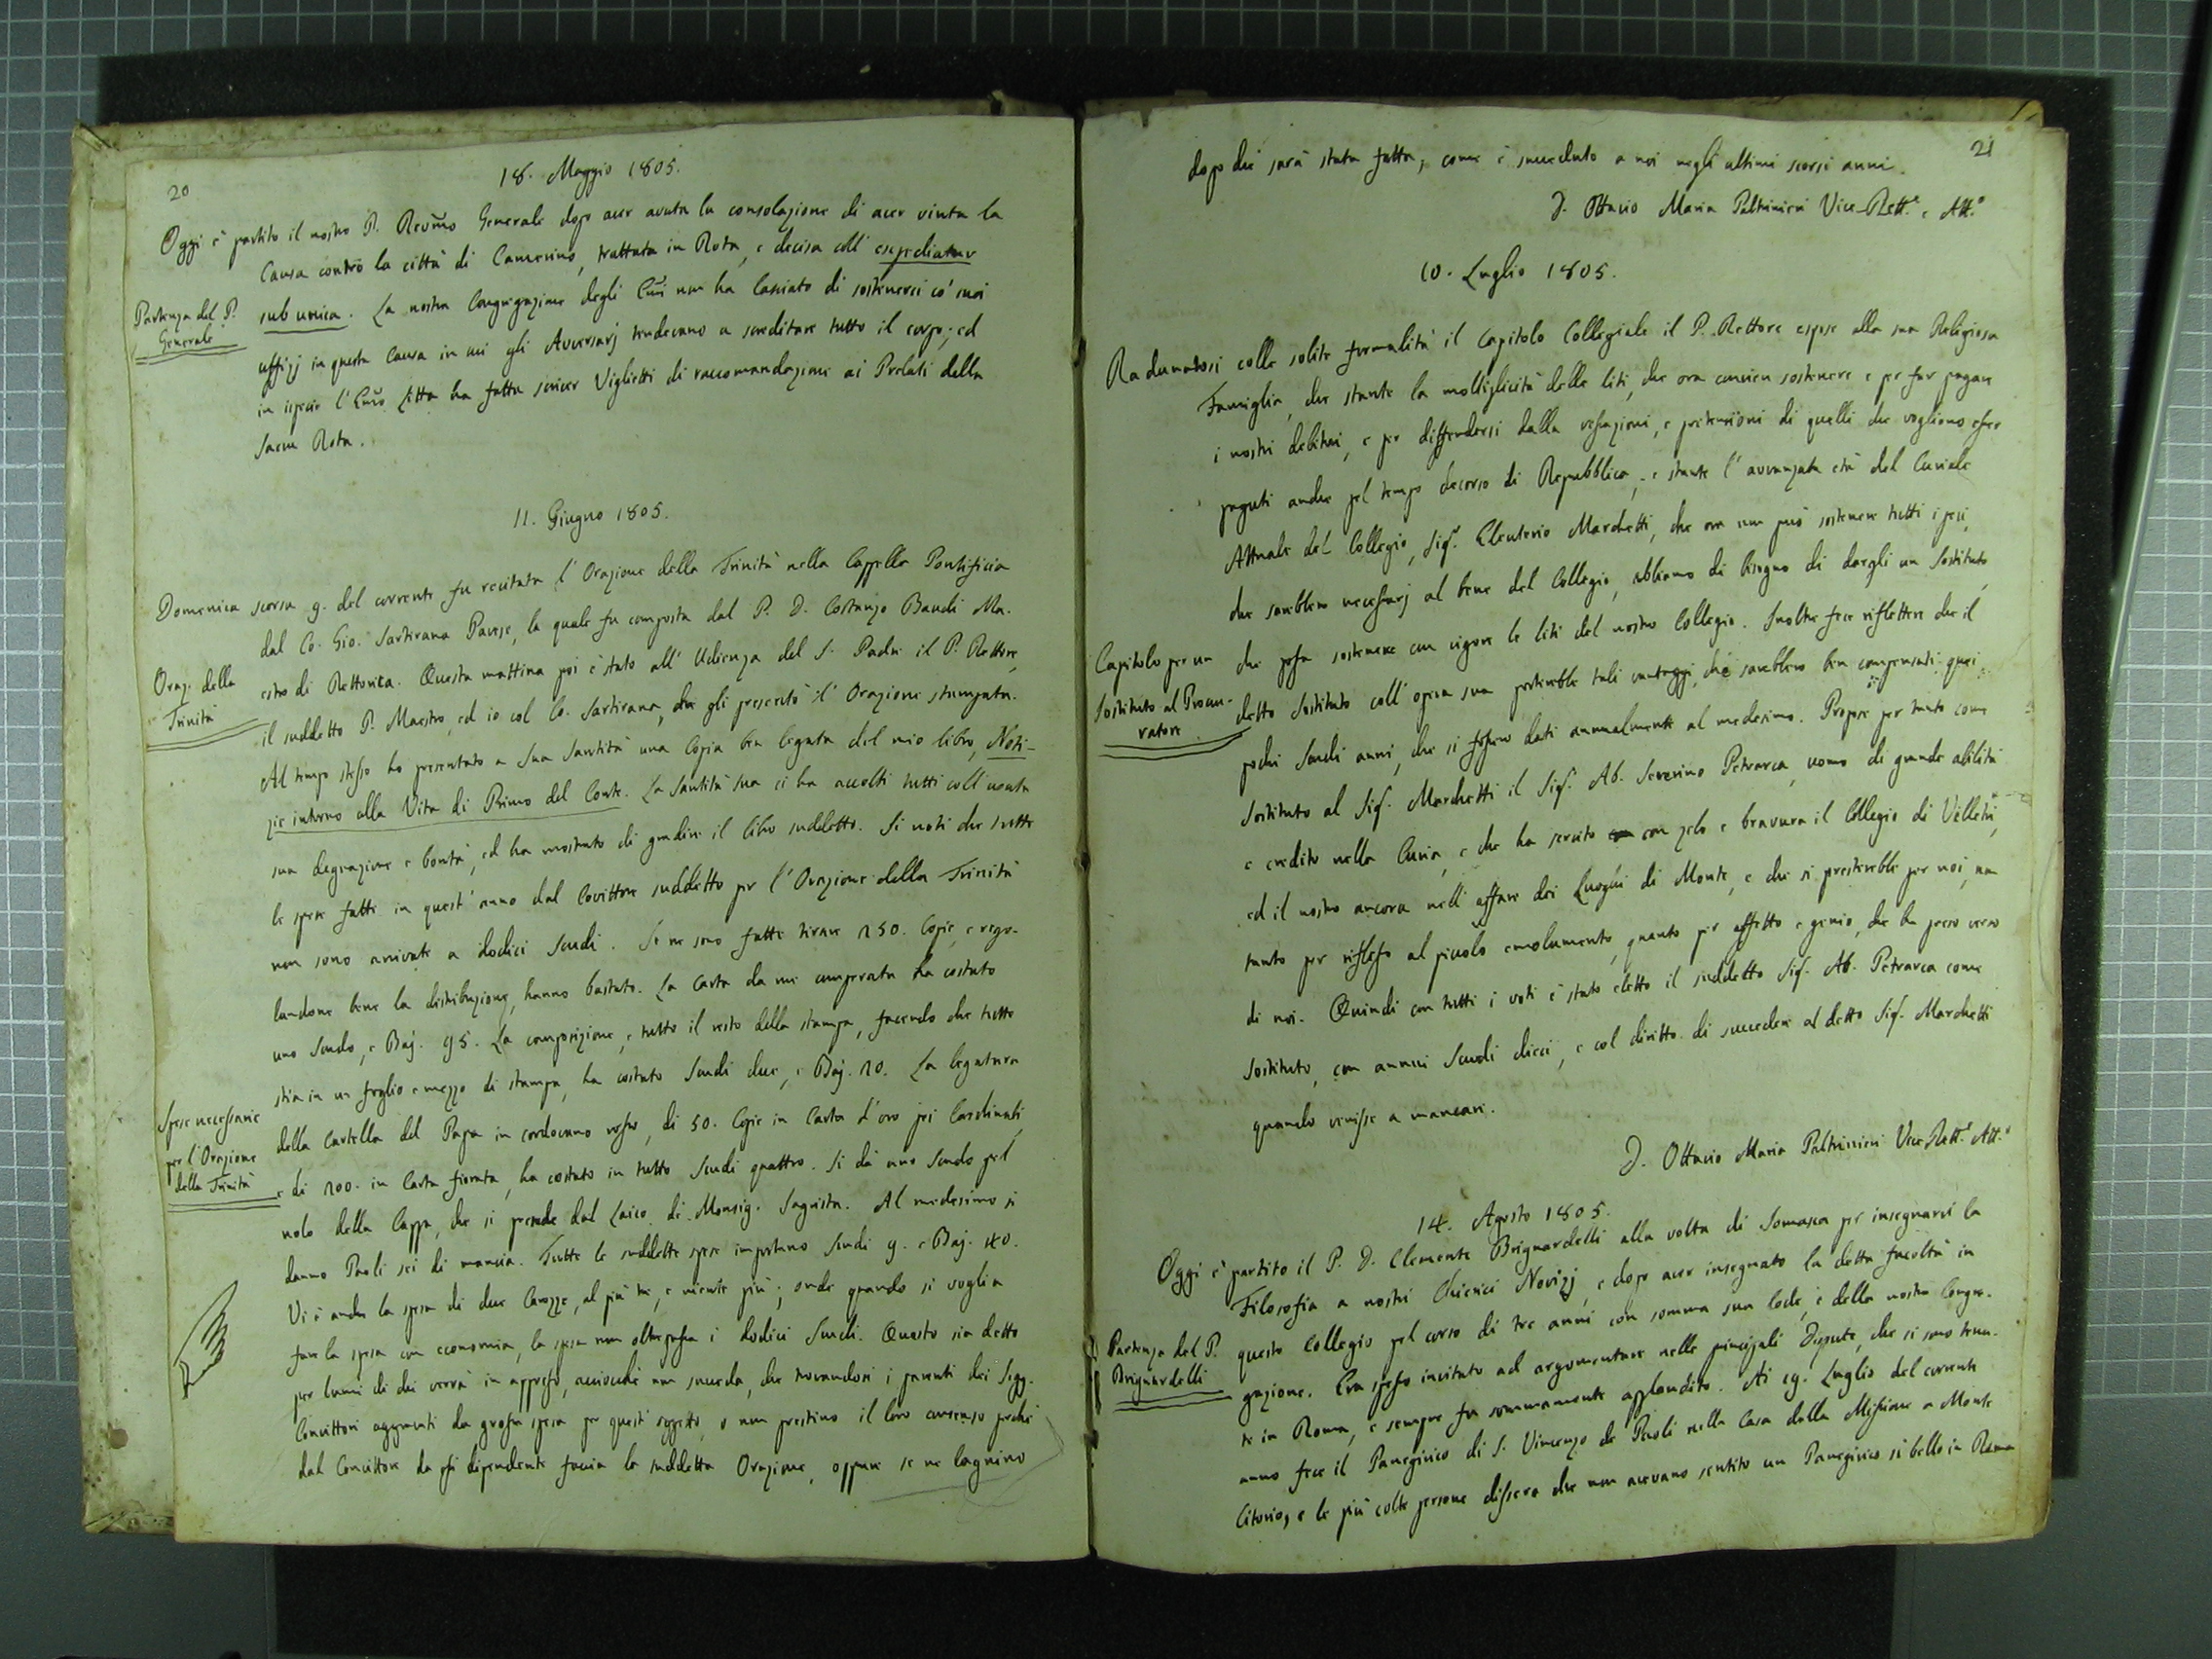 20
18. Maggio 1805.
Oggi è partito il nostro P. Revm̃o Generale dopo aver avuta la consolazione di aver vinta la
Causa contro la città di Camerino, trattata in Rota, e decisa coll' expediatur
Partenza del P.
Generale
sub unica. La nostra Congregazione degli non ha lasciato di sostenerci co' suoi
uffizj in questa Causa in cui gli Avversarj tendevano a screditare tutto il corpo; ed
in ispecie l' Litta ha fatto scriver Viglietti di raccomandazione ai Prelati della
Sacra Rota.
11. Giugno 1805.
Domenica scorsa 9. del corrente fu recitata l'Orazione della Trinità nella Cappella Pontificia
dal Co. Gio. Sartirana Pavese, la quale fu composta dal P. D. Costanzo Baudi Ma-
Oraz. della
Trinità
estro di Rettorica. Questa mattina poi è stato all'Udienza del S. Padre il P. Rettore,
il suddetto P. Maestro, ed io col Co. Sartirana, che gli presentò l'Orazione stampata.
Al tempo stesso ho presentato a Sua Santità una Copia ben legata del mio libro, Noti-
zie intorno alla Vita di Primo del Conte. La Santità Sua ci ha accolti tutti coll'usata
sua degnazione e bontà, ed ha mostrato di gradire il libro suddetto. Si noti che tutte
le spese fatte in quest'anno dal Covittore suddetto per l'Orazione della Trinità
non sono arrivate a dodici Scudi. Se ne sono fatte tirare 250. Copie, e rego-
landone bene la distribuzione, hanno bastato. La Carta da me comperata ha costato
uno Scudo, e Baj. 95. La composizione, e tutto il resto della stampa, facendo che tutto
stia in un foglio e mezzo di stampa, ha costato Scudi due, e Baj. 20. La legatura
Spese necessarie
per l'Orazione
della Trinità
della Cartella del Papa in cordovano rosso, di 50. Copie in Carta d'oro pei Cardinali,
e di 200. in Carta fiorata, ha costato in tutto Scudi quattro. Si dà uno Scudo pel
nolo della Cappa, che si prende dal Laico di Monsig. Sagrista. Al medesimo si
danno Paoli sei di mancia. Tutte le suddette spese importano Scudi 9. e Baj. 40.
Vi è anche la spesa di due Carozze, al più tre, e niente più; onde quando si voglia
fare la spesa con economia, la spesa non oltrepassa i dodici Scudi. Questo sia detto
per lume di chi verrà in appresso, acciocchè non succeda, che trovandosi i parenti dei Sigg.
Convittori aggravati da grossa spesa per questi oggetto, o non prestino il loro consenso perchè
dal Convittore da essi dipendente faccia la suddetta Orazione, oppure se ne lagnino
21
dopo che sarà stata fatta, come è succeduto a noi negli ultimi scorsi anni.
D. Ottavio Maria Paltrinieri Vice-Rett.e e Att.o
10. Luglio 1805.
Radunatosi colle solite formalità il Capitolo Collegiale il P. Rettore espose alla sua Religiosa
Famiglia, che stante la moltiplicità delle liti, che ora convien sostenere e per far pagare
i nostri debitori, e per diffendersi dalla vessazioni, e pretensioni di quelli che vogliono esser
pagati anche pel tempo decorso di Repubblica, e stante l'avvanzata età del Curiale
Attuale del Collegio, Sig.r Eleuterio Marchetti, che ora non può sostenere tutti i pesi,
che sarebbero necessarj al bene del Collegio, abbiamo di bisogno di dargli un Sostituto,
Capitolo per un
Sostituto al Procu-
ratore
che possa sostenere con vigore le liti del nostro Collegio. Inoltre fece riflettere che il
detto Sostituto coll'opera sua porterebbe tali vantaggi, che sarebbero ben compensati quei
pochi Scudi annui, che si fossero dati annualmente al medesimo. Propose per tanto come
Sostituto al Sig.r Marchetti il Sig.r Ab. Severino Petrarca, uomo di grande abilità
e credito nella Curia, e che ha servito con zelo e bravura il Collegio di Velletri,
ed il nostro ancora nell'affare dei Luoghi di Monte, e che si presterebbe per noi, non
tanto per riflesso al piccolo emolumento, quanto per affetto e genio, che ha preso verso
di noi. Quindi con tutti i voti è stato eletto il suddetto Sig.r Ab. Petrarca come
Sostituto, con annui Scudi dieci, e col diritto di succedere al detto Sig.r Marchetti
quando venisse a mancare.
D. Ottavio Maria Paltrinieri Vice Rett.e Att.o
14. Agosto 1805.
Oggi è partito il P. D. Clemente Brignardelli alla volta di Somasca per insegnarvi la
Filosofia a nostri Chierici Novizj, e dopo aver insegnato la detta facoltà in
Partenza del P.
Brignardelli
questo Collegio pel corso di tre anni con somma sua lode, e della nostra Congre-
gazione. Era spesso invitato ad argomentare nelle principali Dispute, che si sono tenu-
te in Roma, e sempre fu sommamente applaudito. Ai 19. Luglio del corrente
anno fece il Panegirico di S. Vincenzo de Paoli nella Casa della Missione a Monte
Citorio, e le più colte persone dissero che non avevano sentito un Panegirico sì bello in Roma